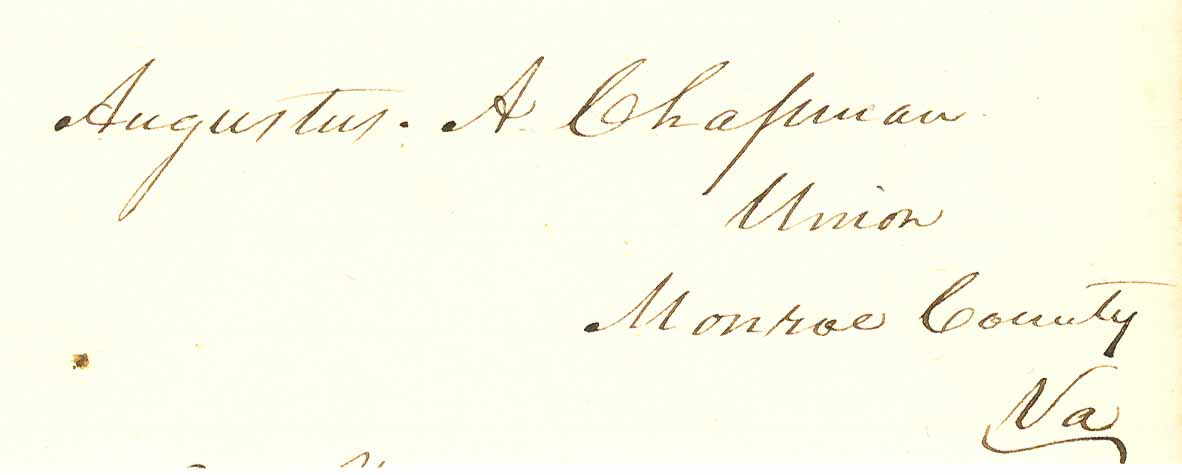 Augustus. A Chapman
Union
Monroe County
Va